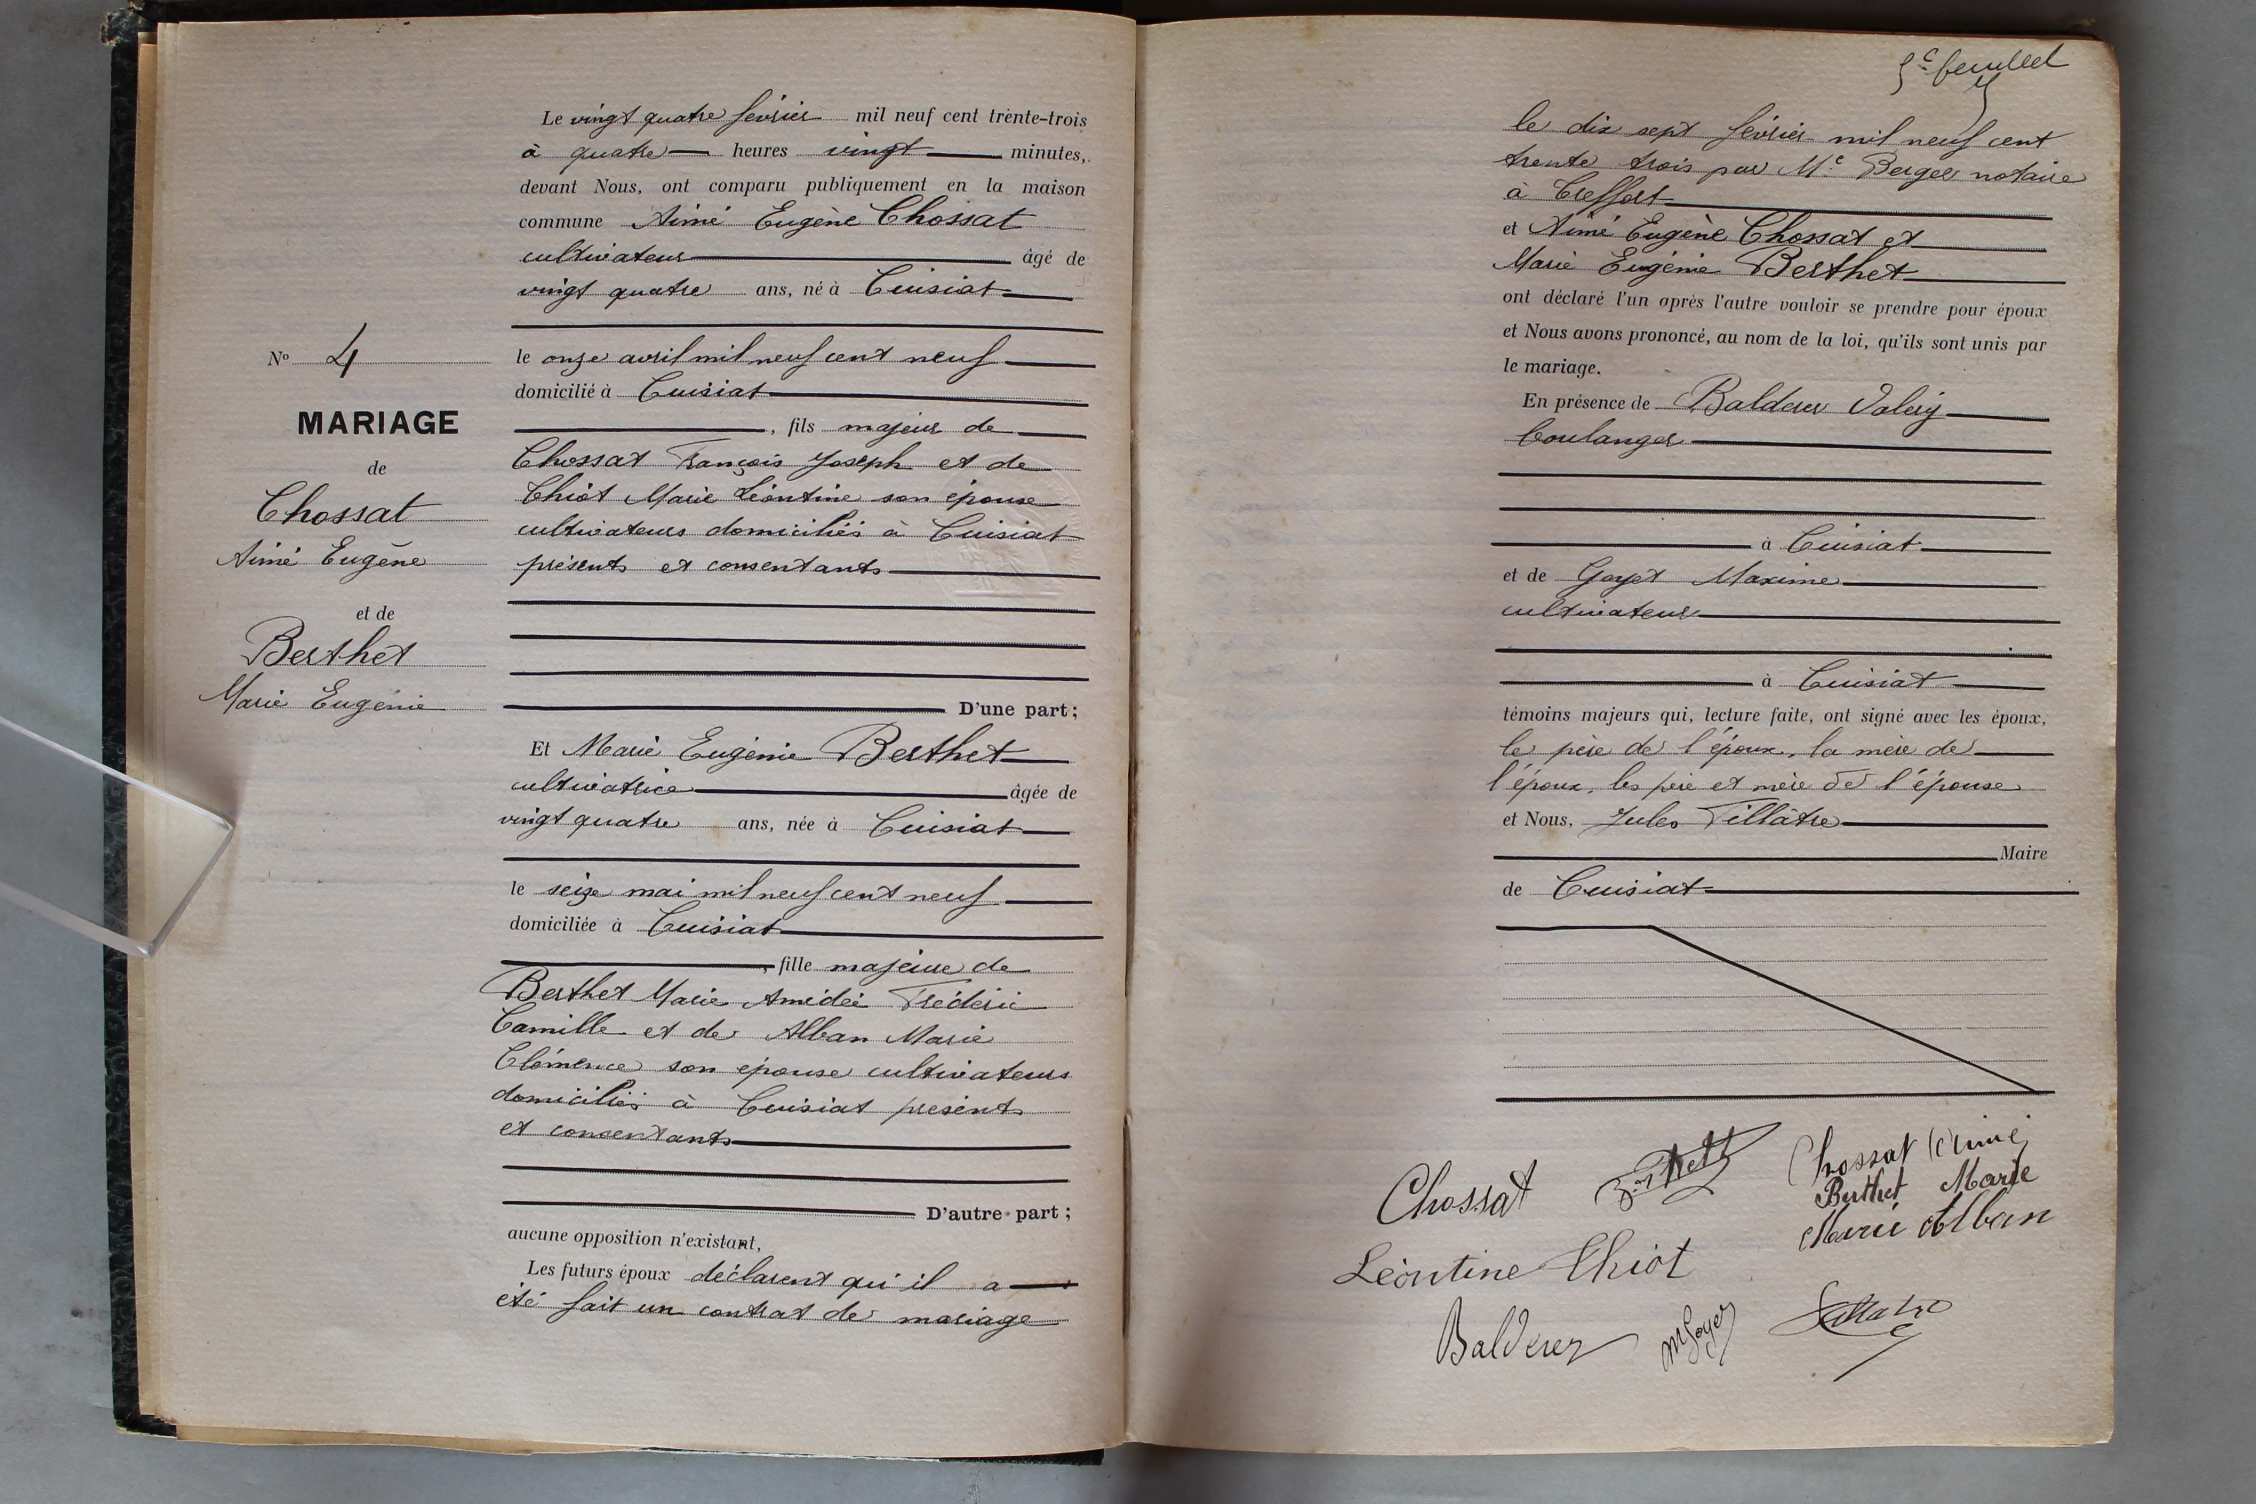 Le vingt quatre février mil neuf cent trente-trois
à quatre heures vingt minutes,
devant Nous, ont comparu publiquement en la maison
commune Aimé Eugène Chossat
cultivateur âgé de
vingt quatre ans, né à Cuisiat
le onze avril mil neuf cent neuf
domicilié à Cuisiat
, fils majeur de
Chossat François Joseph et de
Thiôt Marie Léontine son épouse
cultivateurs domiciliés à Cuisiat
présents et consentants
D'une part ;
Et Marie Eugénie Berthet
cultivatrice âgée de
vingt quatre ans, née à Cuisiat
le seize mai mil neuf cent neuf
domiciliée à Cuisiat
, fille majeure de
Berthet Marie Amédée Frédéric
Camille et de Alban Marie
Clémence son épouse cultivateurs
domiciliés à Cuisiat présents
et consentants
D'autre part ;
aucune opposition n'existant,
Les futurs époux déclarent qu'il a
été fait un contrat de mariage
No 4
MARIAGE
de
Chossat
Aimé Eugène
et de
Berthet
Marie Eugénie
le dix sept février mil neuf cent
trente trois par Me Berger notaire
à Treffort
et Aimé Eugène Chossat et
Marie Eugénie Berthet
ont déclaré l'un après l'autre vouloir se prendre pour époux
et Nous avons prononcé, au nom de la loi, qu'ils sont unis par
le mariage.
En présence de Balderer Valery
boulanger
à Cuisiat
et de Goyet Maxime
cultivateur
à Cuisiat
témoins majeurs qui, lecture faite, ont signé avec les époux,
le père de l'époux, la mère de
l'époux, les père et mère de l'épouse
et Nous, Jules Tillâtre
Maire
de Cuisiat
Chossat
Chossat Aimé
Berthet Marie
Marie Alban
Léontine Thiôt
Balderer